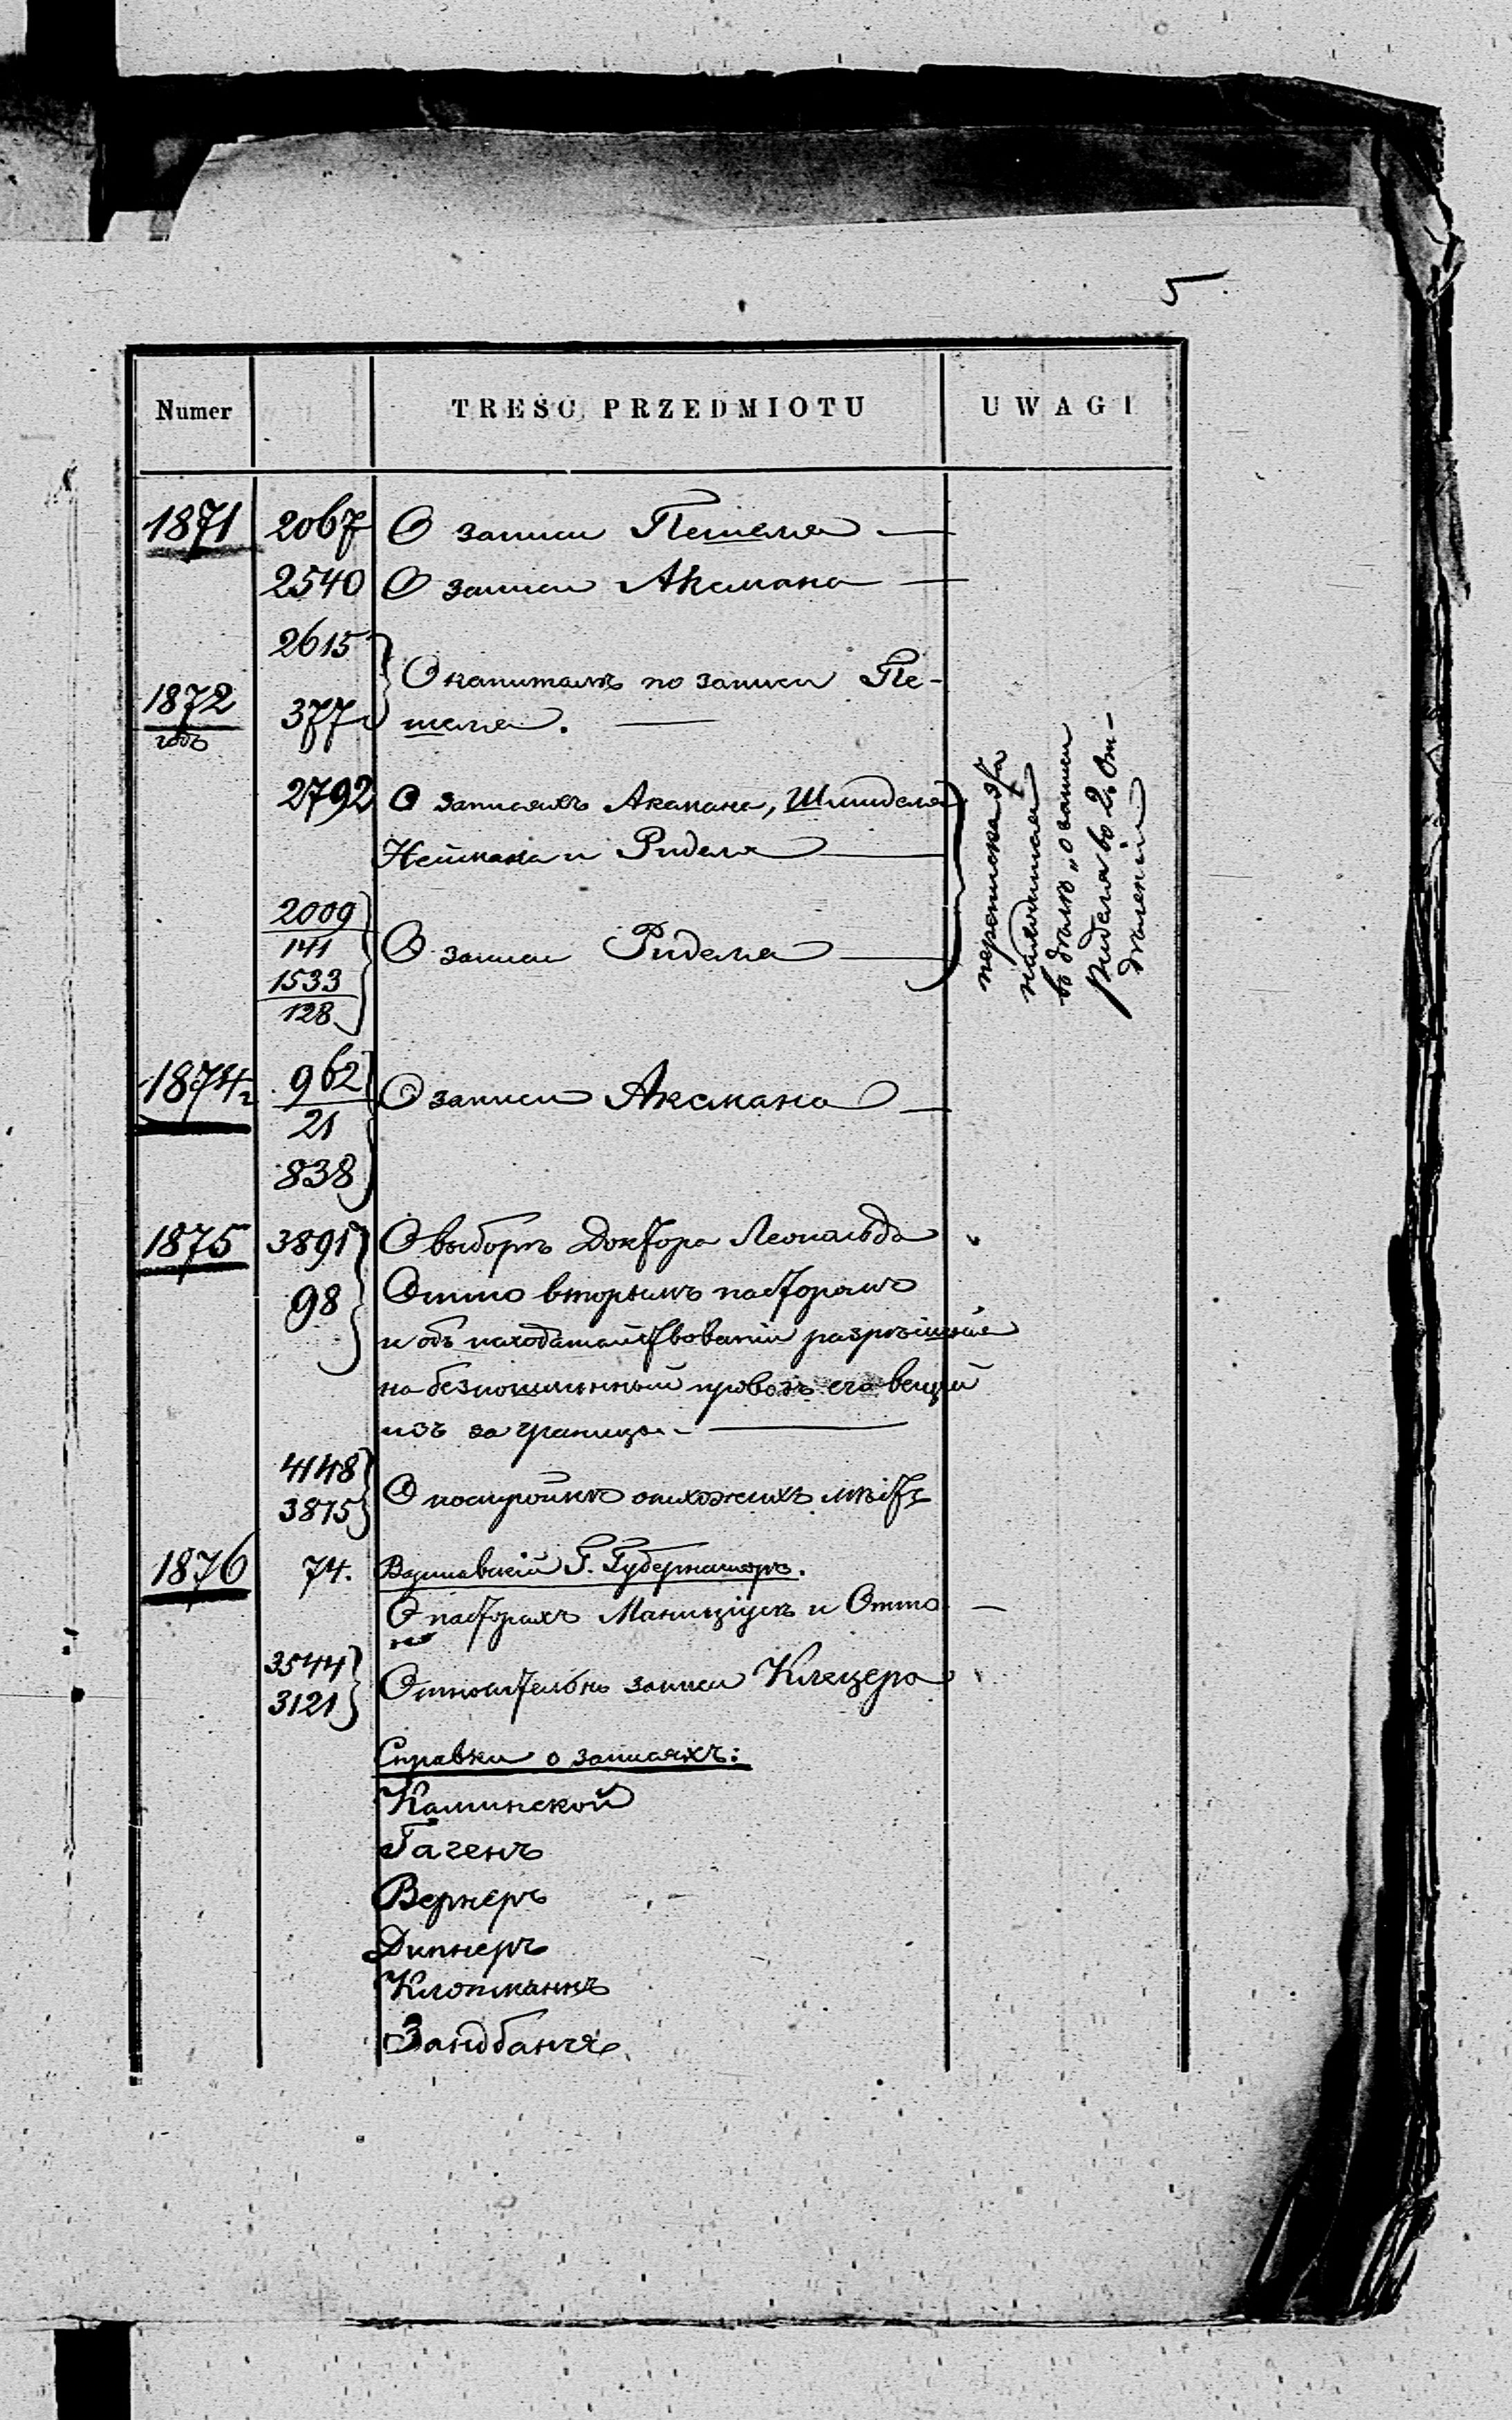 5.
Numer TREŚĆ PRZEDMIOTU UWAGI
1871 2067 О записи Пешеля —
2540 О записи Аксмана —
2615
О капиталѣ по записи Пе-
1872 377 шеля. —
годъ
2792 О записяхъ Аксмана, Шпиделя
Неймана и Риделя —
2009
141 О записи Риделя —
1533
128
переписка эта
находится
въ дѣлѣ „о записи
Риделя во 2. От-
дѣленіи
1874 г 962 О записи Аксмана —
21
838
1875 3891 О выборѣ Доктора Леопольда
98 Отто вторымъ пасторомъ
и объ исходатайствованіи разрѣшенія
на безпошлинный провозъ его вещей
изъ за границы. —
4148
О постройкѣ отхожихъ мѣстъ
3875
1876 74. Варшавскій Г. Губернаторъ.
О пасторахъ Маниціусѣ и Отто —
3544
Относительно записи Клецера
3121
Справки о записяхъ:
Каминской
Гагенъ
Вернеръ
Дипнеръ
Клотманнъ